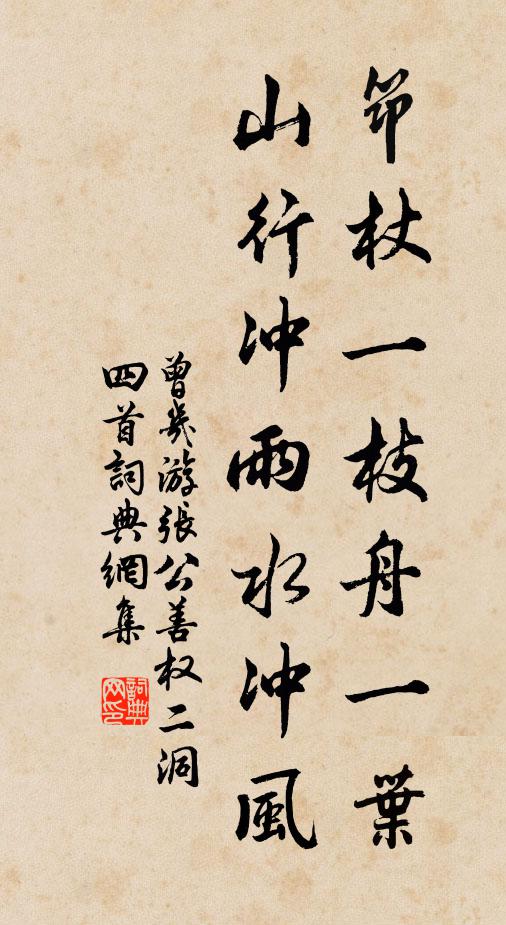 笻杖一枝舟一葉
山行冲雨水冲風
曾幾游張公善权二洞
四首詞典網集
詞典
网印